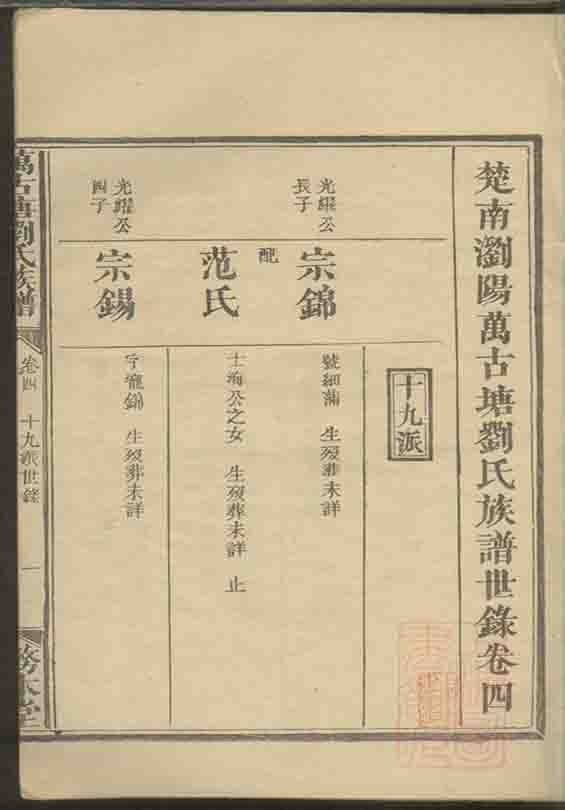 楚南瀏陽萬古塘劉氏族譜世錄卷四
十九派
光繼公
長子
宗錦
號細蒲 生歿葬未詳
配
范氏
士珣公之女 生歿葬未詳 止
光繼公
四子
宗錫
字寵錦 生歿葬未詳
萬古塘劉氏族譜
卷四
十九派世錄
一
務本堂